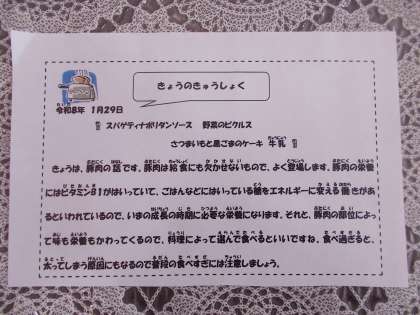 きょうのきゅうしょく
令和8年 1月29日
スパゲティナポリタンソース 野菜のピクルス
さつまいもと黒ごまのケーキ 牛乳
きょうは、豚肉の話です。豚肉は給食にも欠かせないもので、よく登場します。豚肉の栄養
にはビタミンB1がはいっていて、ごはんなどにはいっている糖をエネルギーに変える働きがあ
るといわれているので、いまの成長の時期に必要な栄養になります。それと、豚肉の部位によっ
て味も栄養もかわってくるので、料理によって選んで食べるといいですね。食べ過ぎると、
太ってしまう原因にもなるので普段の食べすぎには注意しましょう。